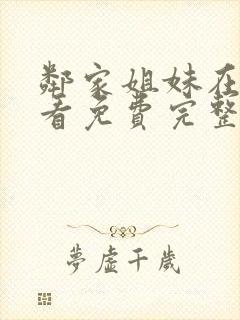 鄰家姐妹在
看免費完整
夢虛千歲